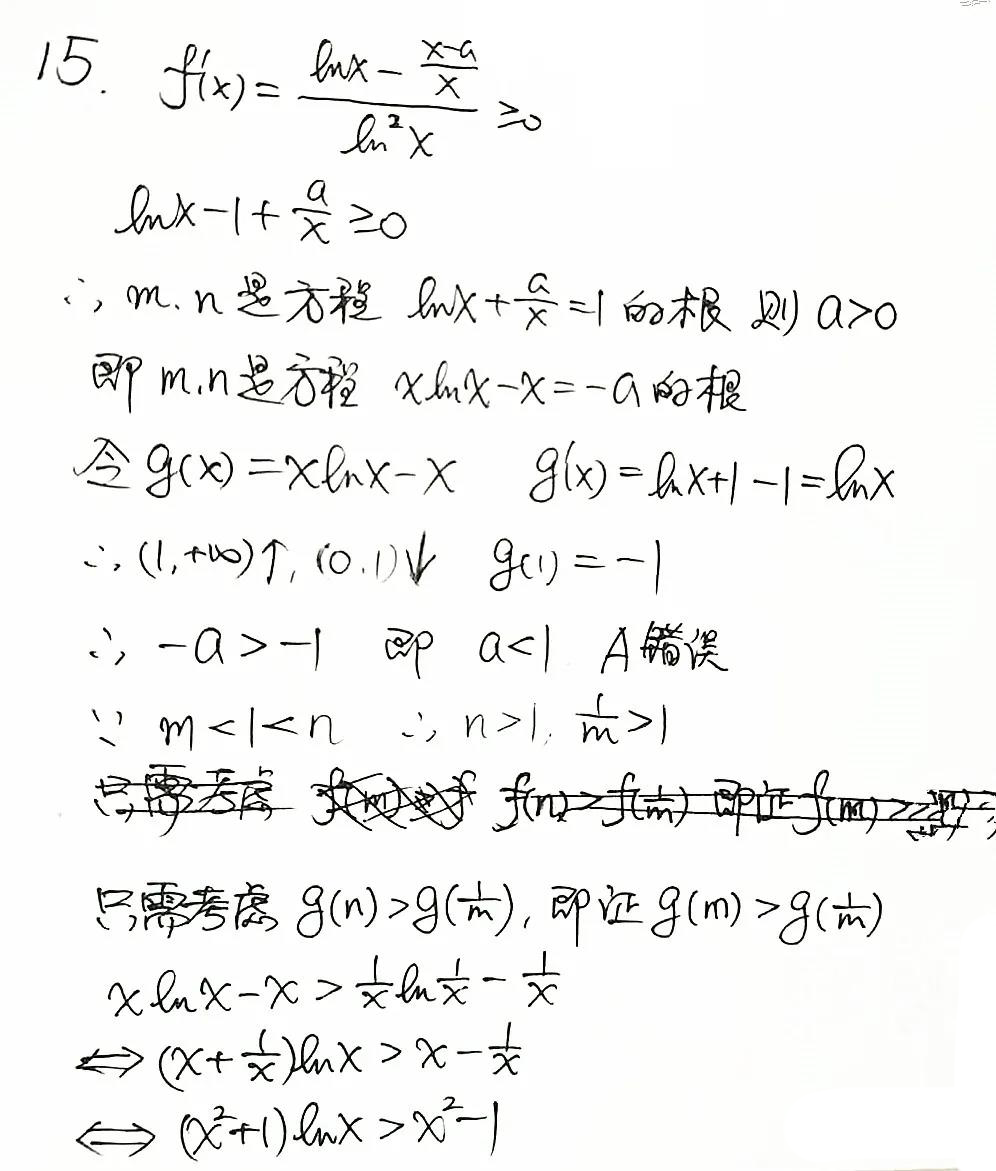 15. f'(x) = (lnx - (x-a)/x) / ln²x ≥0
lnx-1+a/x ≥0
∴ m.n是方程 lnx+a/x=1 的根 则 a>0
即 m.n是方程 xlnx-x=-a的根
令g(x)=xlnx-x g'(x)=lnx+1-1=lnx
∴ (1,+∞)↑, (0,1)↓ g(1)=-1
∴ -a>-1 即 a<1 A错误
∵ m<1<n ∴ n>1, 1/m>1
只需考虑 f(n)>f(1/m) 即证f(m)>
只需考虑 g(n)>g(1/m), 即证g(m)>g(1/m)
xlnx-x>1/x ln1/x-1/x
⇔(x+1/x)lnx>x-1/x
⇔ (x²+1)lnx>x²-1